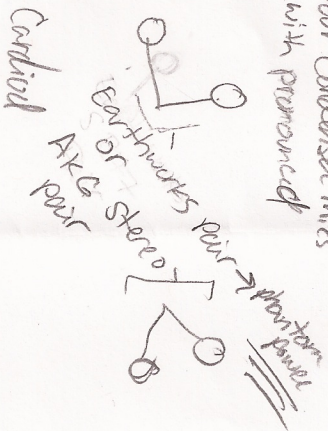 Condenser Mics
with pronounced
Earthworks pair → phantom
power
or
AKG stereo
pair
Cardiod